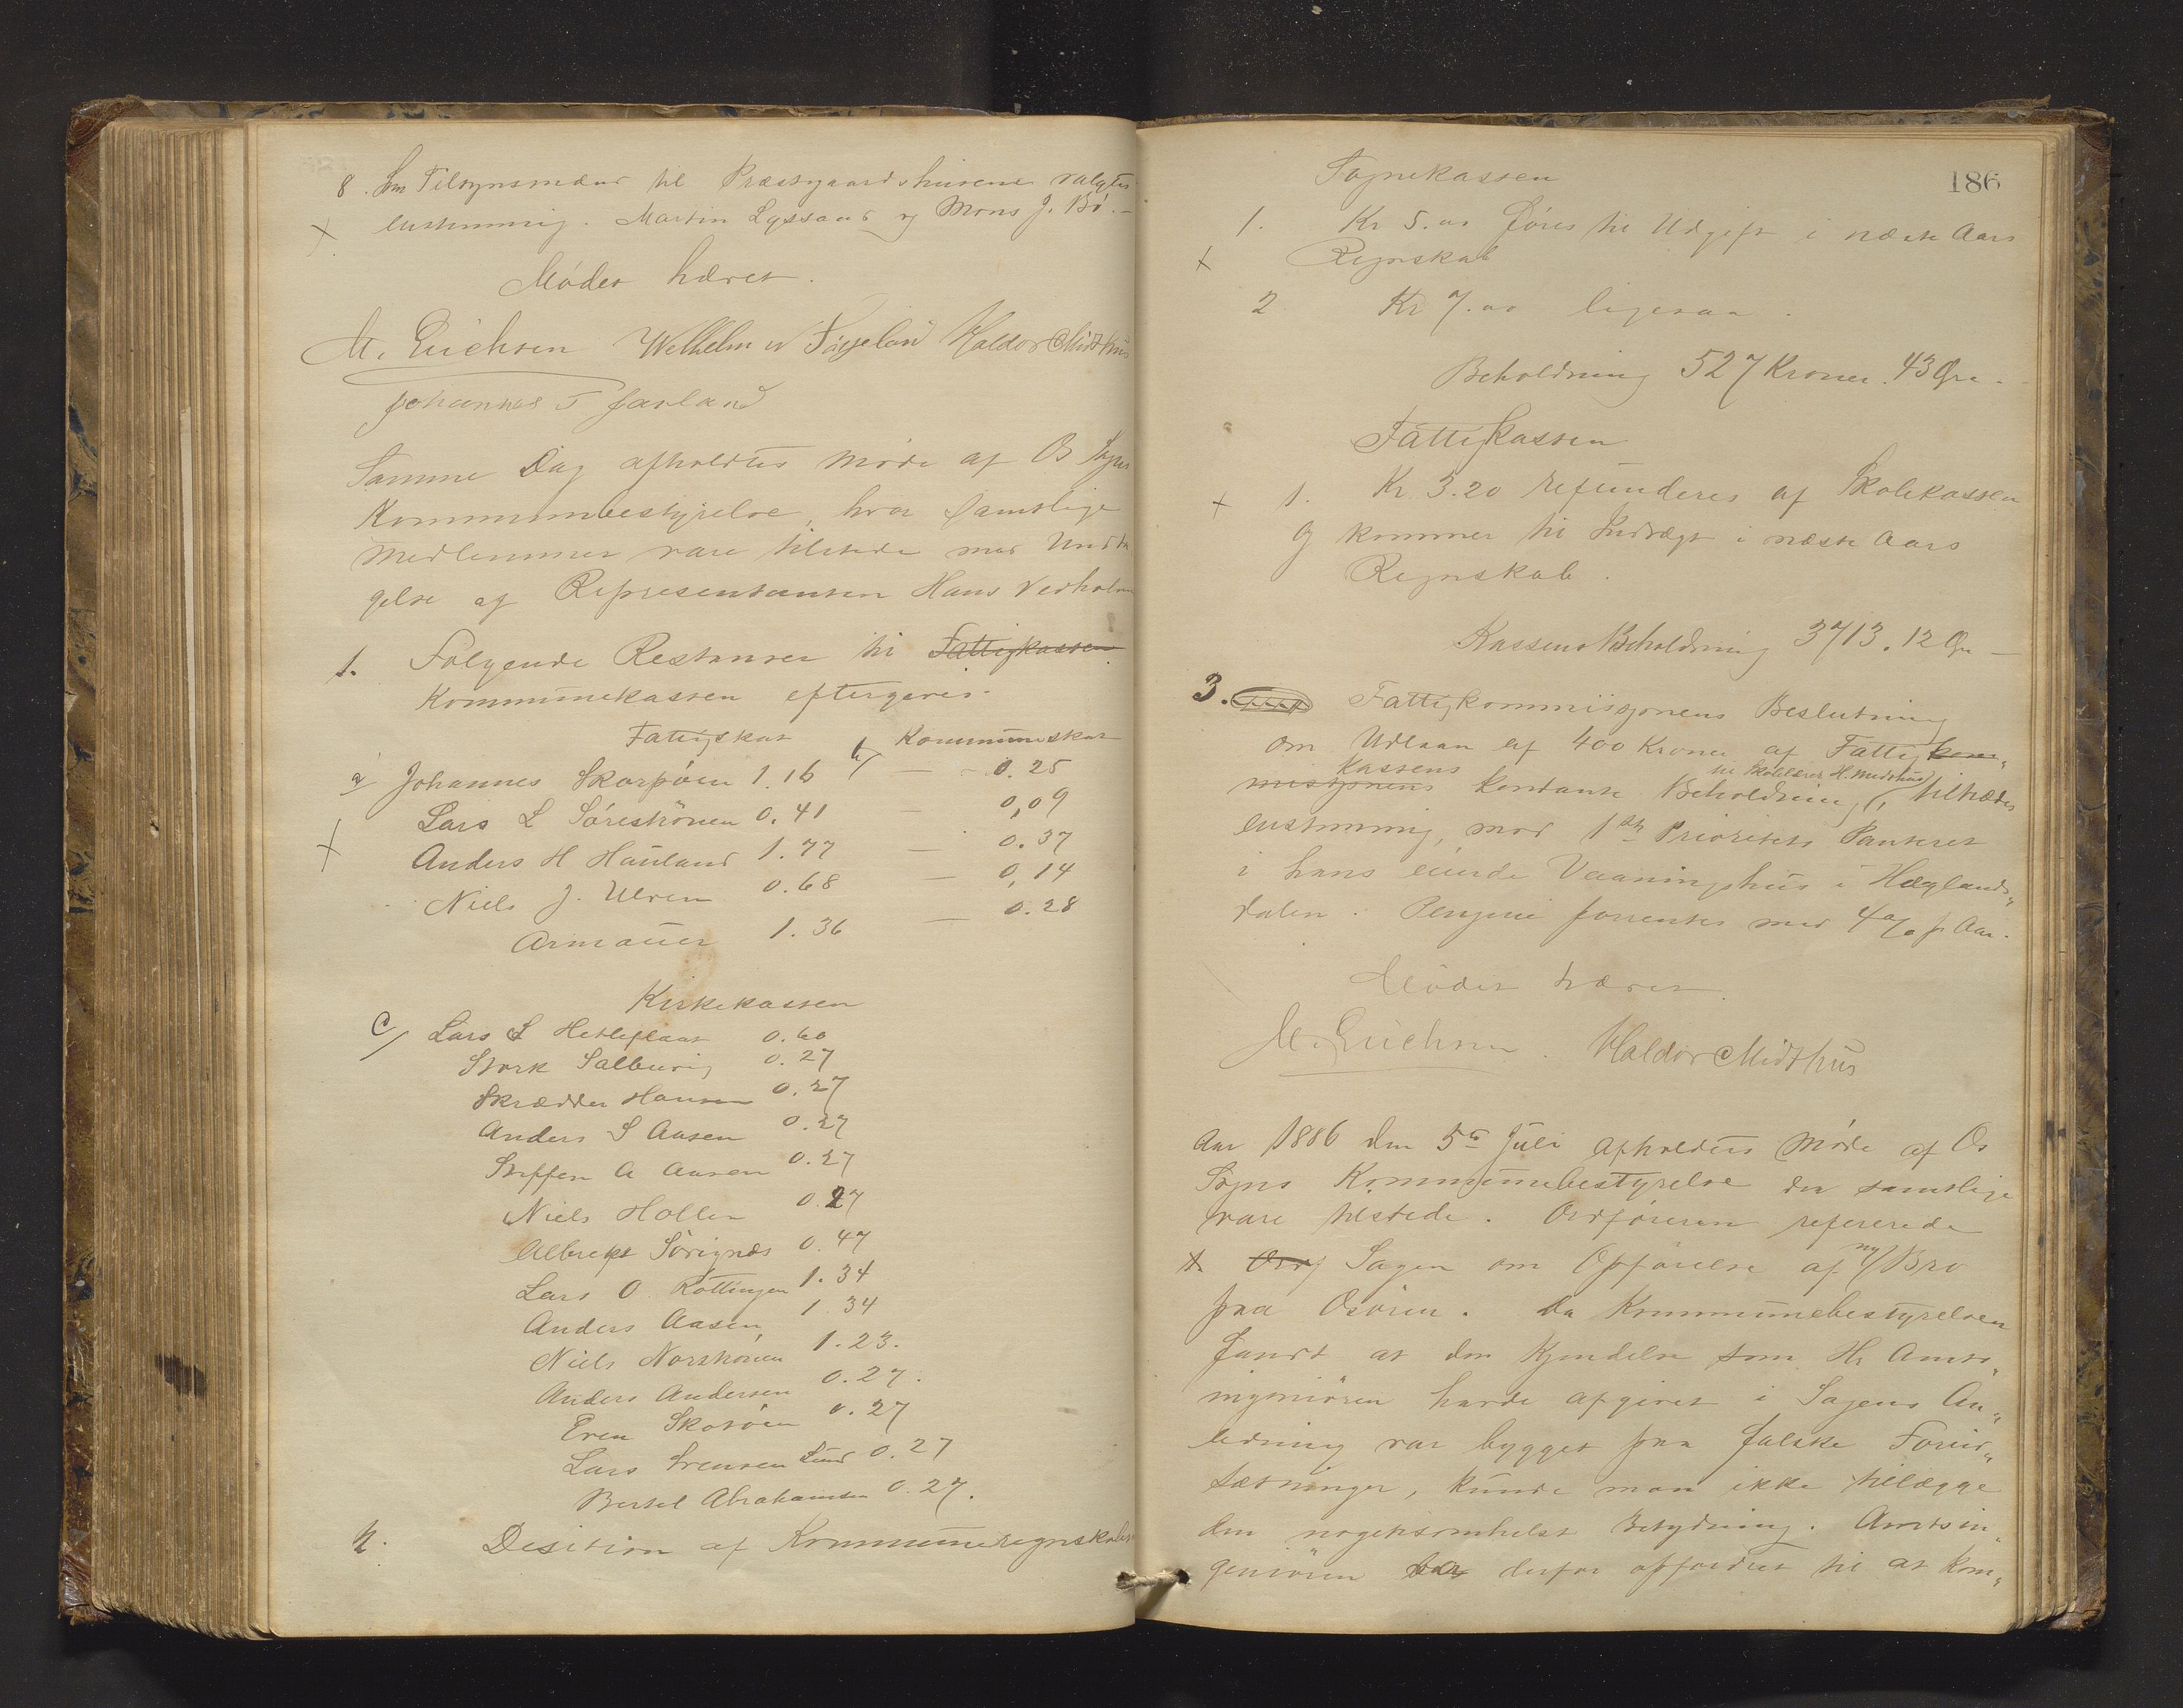 8. Som Tilsynsmænd til Præstegaardshusene valgtes
x enstemmig. Martin Lyssand og Mons J. Bö.-
Mödet hævet.
M. Erichsen Welhelm N Tösseland Haldor Midthus
Johannes T Javland
Samme Dag afholdtes Möde af Os Sogns
Kommunebestyrelse, hvor samtlige
Medlemmer vare tilstede med Undta
gelse af Representanten Hans Vedholm
1. Fölgende Restanser til Fattigkassen
Kommunekassen eftergives.
Fattigskat b/ Kommuneskat
a/ Johannes Skorpöen 1.16 — 0.25
Lars L Söreströnen 0.41 — 0,09
x Anders H Hauland 1.77 — 0.37
Niels J. Ulven 0.68 — 0,14
Armauer 1.36 — 0.28
Kirkekassen
c/ Lars L Hetleflaat 0.60
Stork Salbuvig 0.27
Skrædder Hansen 0.27
Anders S Aasen 0.27
Steffen A Aasen 0.27
Niels Hollen 0.27
Albregt Sörignæs 0.47
Lars O. Röttingen 1.34
Anders Aasen 1.34
Niels Norströnen 1.23.
Anders Andersen 0.27.
Even Skotöen 0.27
Lars Svensen Lund 0.27
Bertel Abrahamsen 0.27.
2. Desition af Kommuneregnskabet
186
Sognekassen
1. Kr 5.00 föres til Udgift i næste Aars
x Regnskab
2 Kr 7.00 ligesaa.
Beholdning 527 Kroner. 43 Øre.
Fattigkassen
x 1. Kr. 3.20 refunderes af Skolekassen
og kommer til Indtægt i næste Aars
Regnskab.
Kassens Beholdning 3713.12 Øre —
3. Fattigkommissjonens Beslutning
om Udlaan af 400 Kroner af Fattigkom„
kassens til Skolelærer H. Midthus
missjonens kontante Beholdning, tiltrædes
enstemmig, mod 1ste Prioritets Panteret
i hans eiende Vaaningshus i Hæglands„
dalen. Pengene forrentes med 4% p. Aar.
Mödet hævet.
M. Erichsen. Haldor Midthus
Aar 1886 den 5te Juli afholdtes Möde af Os
Sogns Kommunebestyrelse der samtlige
vare tilstede. Ordföreren refererede
1. Ordf Sagen om Opförelse af ny Bro
paa Osören. Da Kommunebestyrelsen
fandt at den Kjendelse som Hr Amts„
ingeniören havde afgivet i Sagens An„
ledning var bygget paa falske Forud„
sætninger, kunde man ikke tillægge
den nogensomhelst Betydning. Amtsin„
geniören bør derfor opfordres til at kom„